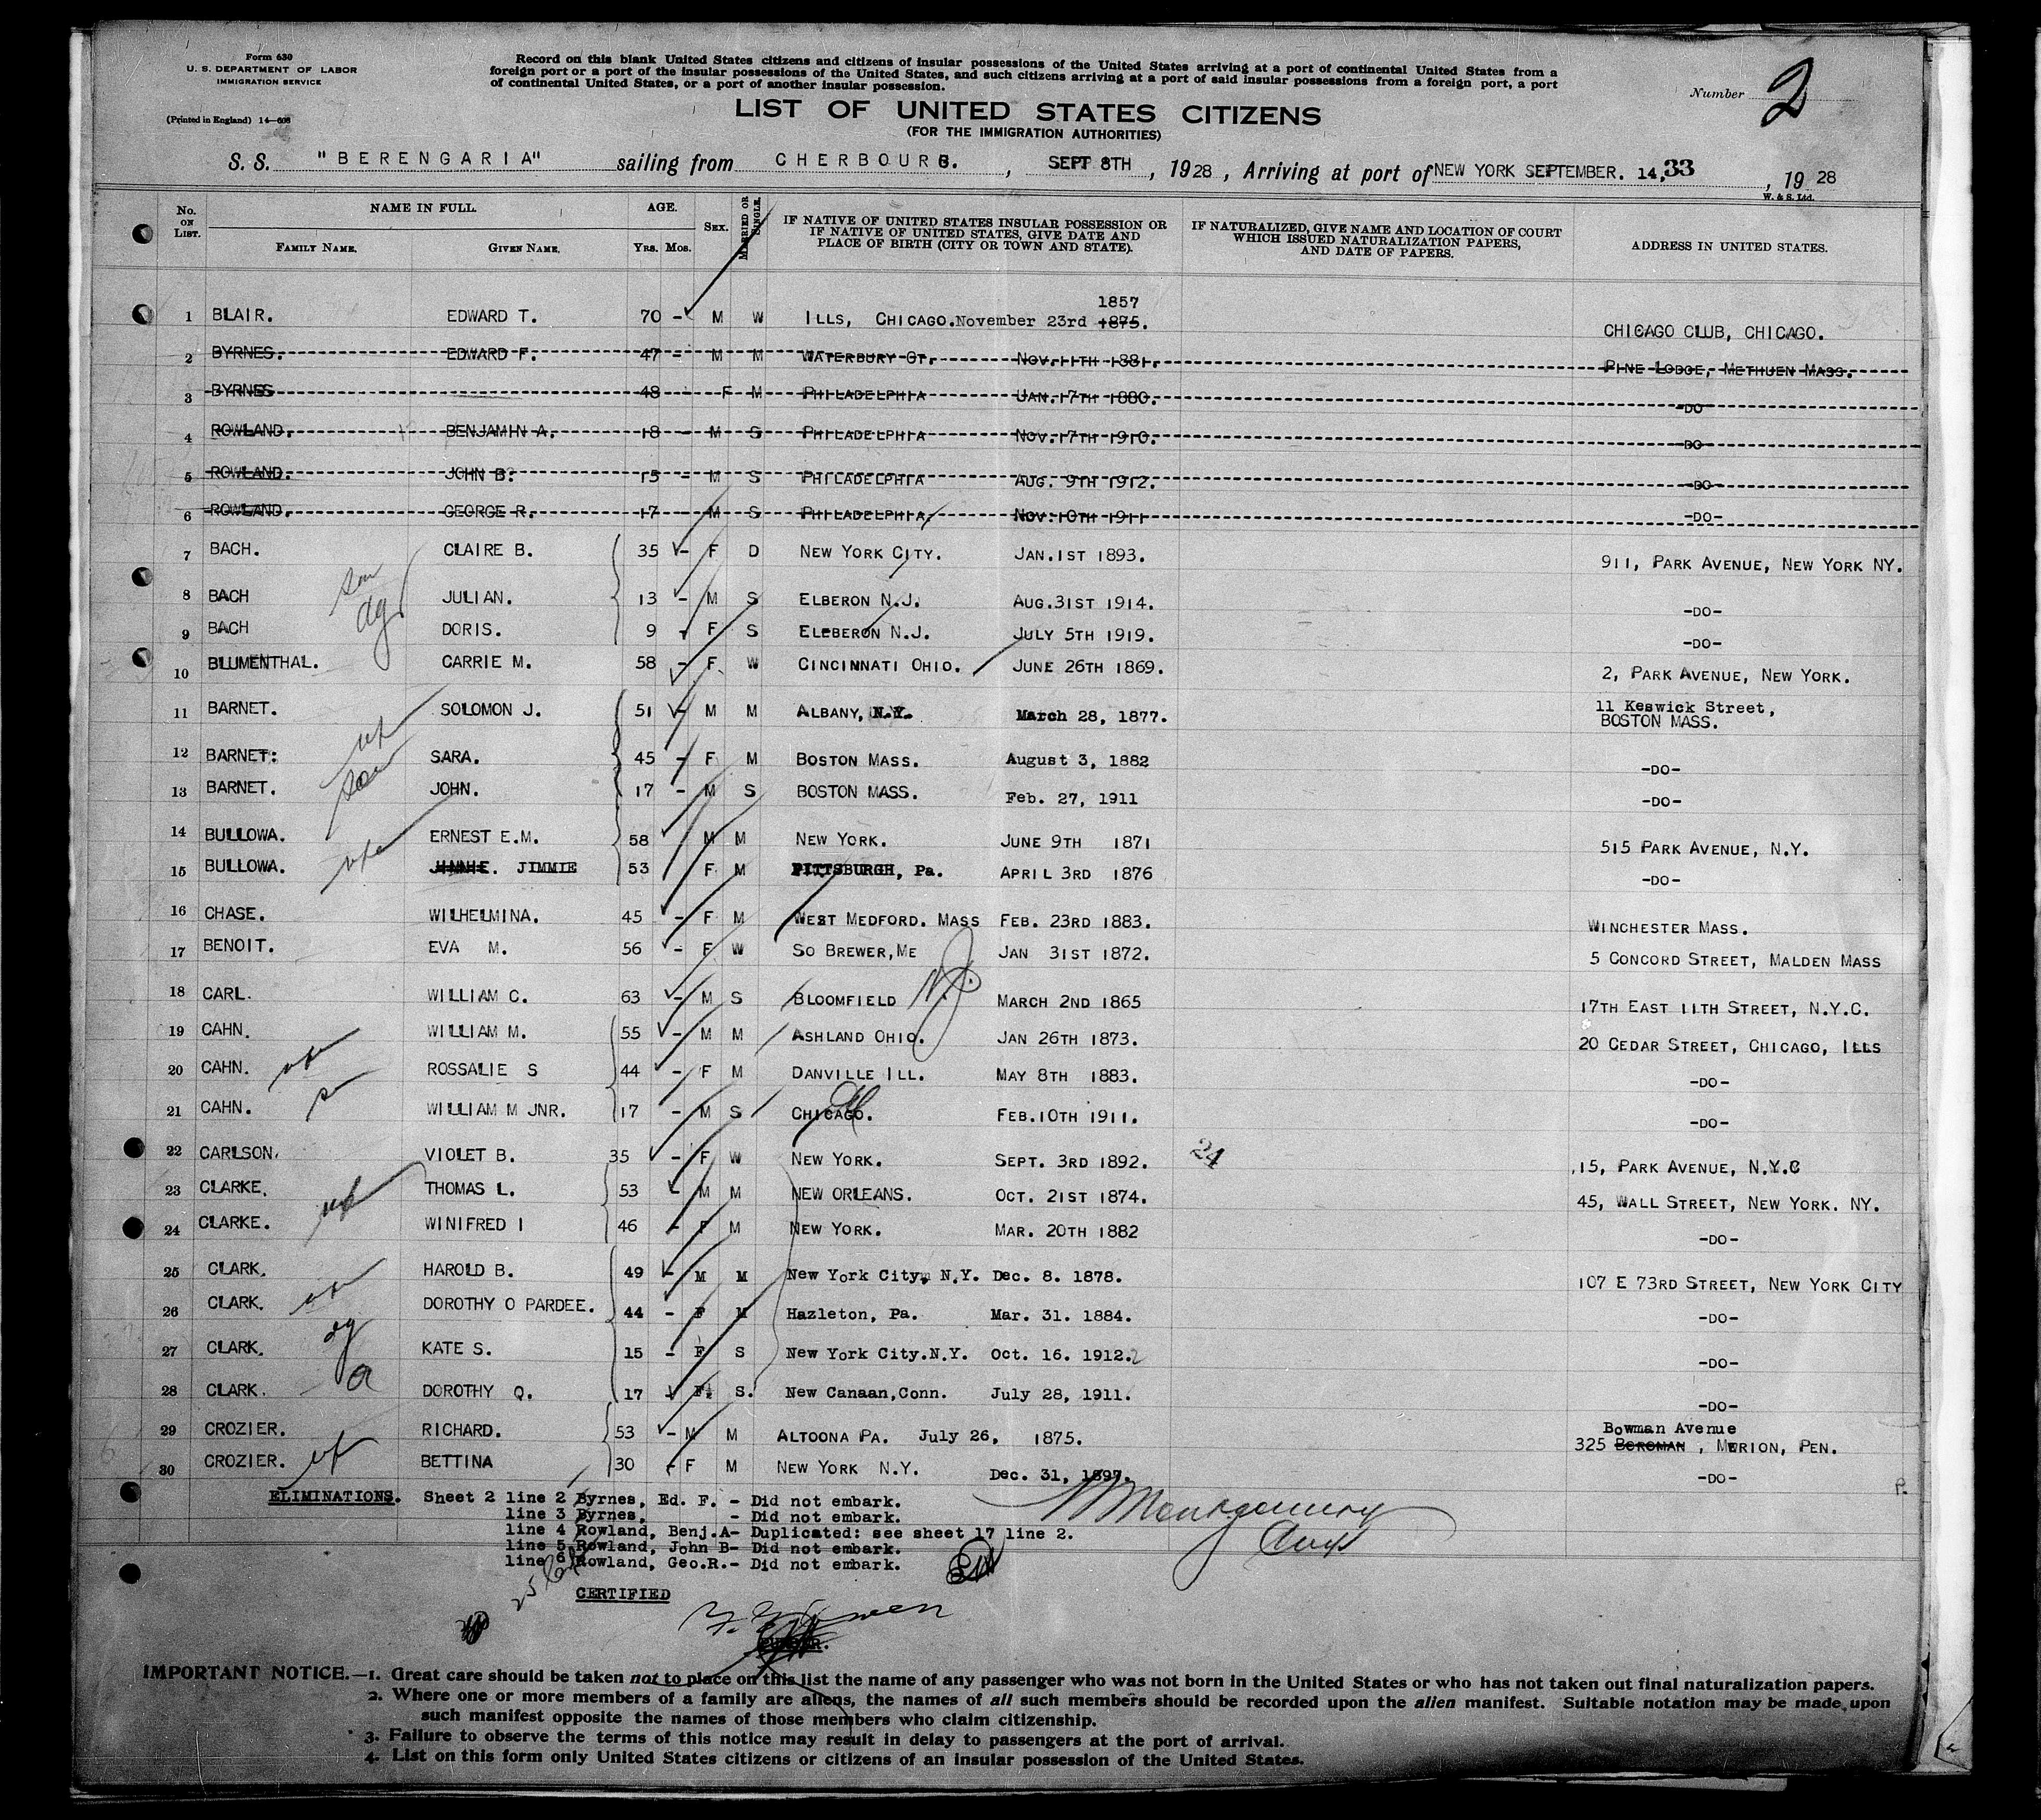 Form 630
U. S. DEPARTMENT OF LABOR
IMMIGRATION SERVICE
(Printed in England) 14—608
Record on this blank United States citizens and citizens of insular possessions of the United States arriving at a port of continental United States from a
foreign port or a port of the insular possessions of the United States, and such citizens arriving at a port of said insular possessions from a foreign port, a port
of continental United States, or a port of another insular possession.
Number 2
LIST OF UNITED STATES CITIZENS
(FOR THE IMMIGRATION AUTHORITIES)
S. S. "BERENGARIA" sailing from CHERBOURG. , SEPT 8TH , 1928 , Arriving at port of NEW YORK SEPTEMBER. 14, 33 , 1928
W. & S. Ltd.
No. ON LIST. NAME IN FULL. FAMILY NAME. GIVEN NAME. AGE. YRS. MOS. SEX. MARRIED OR SINGLE. IF NATIVE OF UNITED STATES INSULAR POSSESSION OR IF NATIVE OF UNITED STATES, GIVE DATE AND PLACE OF BIRTH (CITY OR TOWN AND STATE). IF NATURALIZED, GIVE NAME AND LOCATION OF COURT WHICH ISSUED NATURALIZATION PAPERS, AND DATE OF PAPERS. ADDRESS IN UNITED STATES.
1857
1 BLAIR. EDWARD T. 70 - M W ILLS, CHICAGO. November 23rd 1875. CHICAGO CLUB, CHICAGO.
2 BYRNES. EDWARD F. 47 - M M WATERBURY CT. NOV. 11TH 1881. PINE LODGE, METHUEN MASS.
3 BYRNES 48 F M PHILADELPHIA JAN. 17TH 1880. -DO-
4 ROWLAND. BENJAMIN A. 18 - M S PHILADELPHIA NOV. 17TH 1910. -DO-
5 ROWLAND. JOHN B. 15 - M S PHILADELPHIA AUG. 9TH 1912. -DO-
6 ROWLAND. GEORGE R. 17 - M S PHILADELPHIA, NOV. 10TH 1911 -DO-
7 BACH. CLAIRE B. 35 - F D NEW YORK CITY. JAN. 1ST 1893. 911, PARK AVENUE, NEW YORK NY.
8 BACH son JULIAN. 13 - M S ELBERON N.J. AUG. 31ST 1914. -DO-
9 BACH dg DORIS. 9 - F S ELEBERON N.J. JULY 5TH 1919. -DO-
10 BLUMENTHAL. CARRIE M. 58 - F W CINCINNATI OHIO. JUNE 26TH 1869. 2, PARK AVENUE, NEW YORK.
11 BARNET. SOLOMON J. 51 - M M ALBANY, N.Y. March 28, 1877. 11 Keswick Street, BOSTON MASS.
12 BARNET: SARA. 45 - F M BOSTON MASS. August 3, 1882 -DO-
13 BARNET. son JOHN. 17 - M S BOSTON MASS. Feb. 27, 1911 -DO-
14 BULLOWA. ERNEST E.M. 58 M M NEW YORK. JUNE 9TH 1871 515 PARK AVENUE, N.Y.
15 BULLOWA. JIMMIE 53 F M PITTSBURGH, Pa. APRIL 3RD 1876 -DO-
16 CHASE. WILHELMINA. 45 - F M WEST MEDFORD. MASS FEB. 23RD 1883. WINCHESTER MASS.
17 BENOIT. EVA M. 56 - F W SO BREWER, ME JAN 31ST 1872. 5 CONCORD STREET, MALDEN MASS
18 CARL. WILLIAM C. 63 - M S BLOOMFIELD N.J. MARCH 2ND 1865 17TH EAST 11TH STREET, N.Y.C.
19 CAHN. WILLIAM M. 55 - M M ASHLAND OHIO. JAN 26TH 1873. 20 CEDAR STREET, CHICAGO, ILLS
20 CAHN. ROSSALIE S 44 - F M DANVILLE ILL. MAY 8TH 1883. -DO-
21 CAHN. WILLIAM M JNR. 17 - M S CHICAGO. FEB. 10TH 1911. -DO-
22 CARLSON. VIOLET B. 35 - F W NEW YORK. SEPT. 3RD 1892. 24 15, PARK AVENUE, N.Y.C
23 CLARKE. THOMAS L. 53 - M M NEW ORLEANS. OCT. 21ST 1874. 45, WALL STREET, NEW YORK. NY.
24 CLARKE. WINIFRED I 46 - F M NEW YORK. MAR. 20TH 1882 -DO-
25 CLARK. HAROLD B. 49 - M M New York City, N.Y. Dec. 8. 1878. 107 E 73RD STREET, NEW YORK CITY
26 CLARK. DOROTHY O PARDEE. 44 - F M Hazleton, Pa. Mar. 31. 1884. -DO-
27 CLARK. dg KATE S. 15 - F S New York City. N.Y. Oct. 16. 1912. -DO-
28 CLARK. DOROTHY Q. 17 F. S. New Canaan, Conn. July 28, 1911. -DO-
29 CROZIER. RICHARD. 53 - M M ALTOONA PA. July 26, 1875. Bowman Avenue 325 BOROMAN , MERION, PEN.
30 CROZIER. BETTINA 30 - F M NEW YORK N.Y. Dec. 31, 1897. -DO-
ELIMINATIONS. Sheet 2 line 2 Byrnes, Ed. F. - Did not embark.
line 3 Byrnes, - Did not embark.
line 4 Rowland, Benj.A- Duplicated: see sheet 17 line 2.
line 5 Rowland, John B- Did not embark.
line 6 Rowland, Geo.R.- Did not embark.
Montgomery
CERTIFIED
PURSER.
IMPORTANT NOTICE.—1. Great care should be taken not to place on this list the name of any passenger who was not born in the United States or who has not taken out final naturalization papers.
2. Where one or more members of a family are aliens, the names of all such members should be recorded upon the alien manifest. Suitable notation may be made upon
such manifest opposite the names of those members who claim citizenship.
3. Failure to observe the terms of this notice may result in delay to passengers at the port of arrival.
4. List on this form only United States citizens or citizens of an insular possession of the United States.